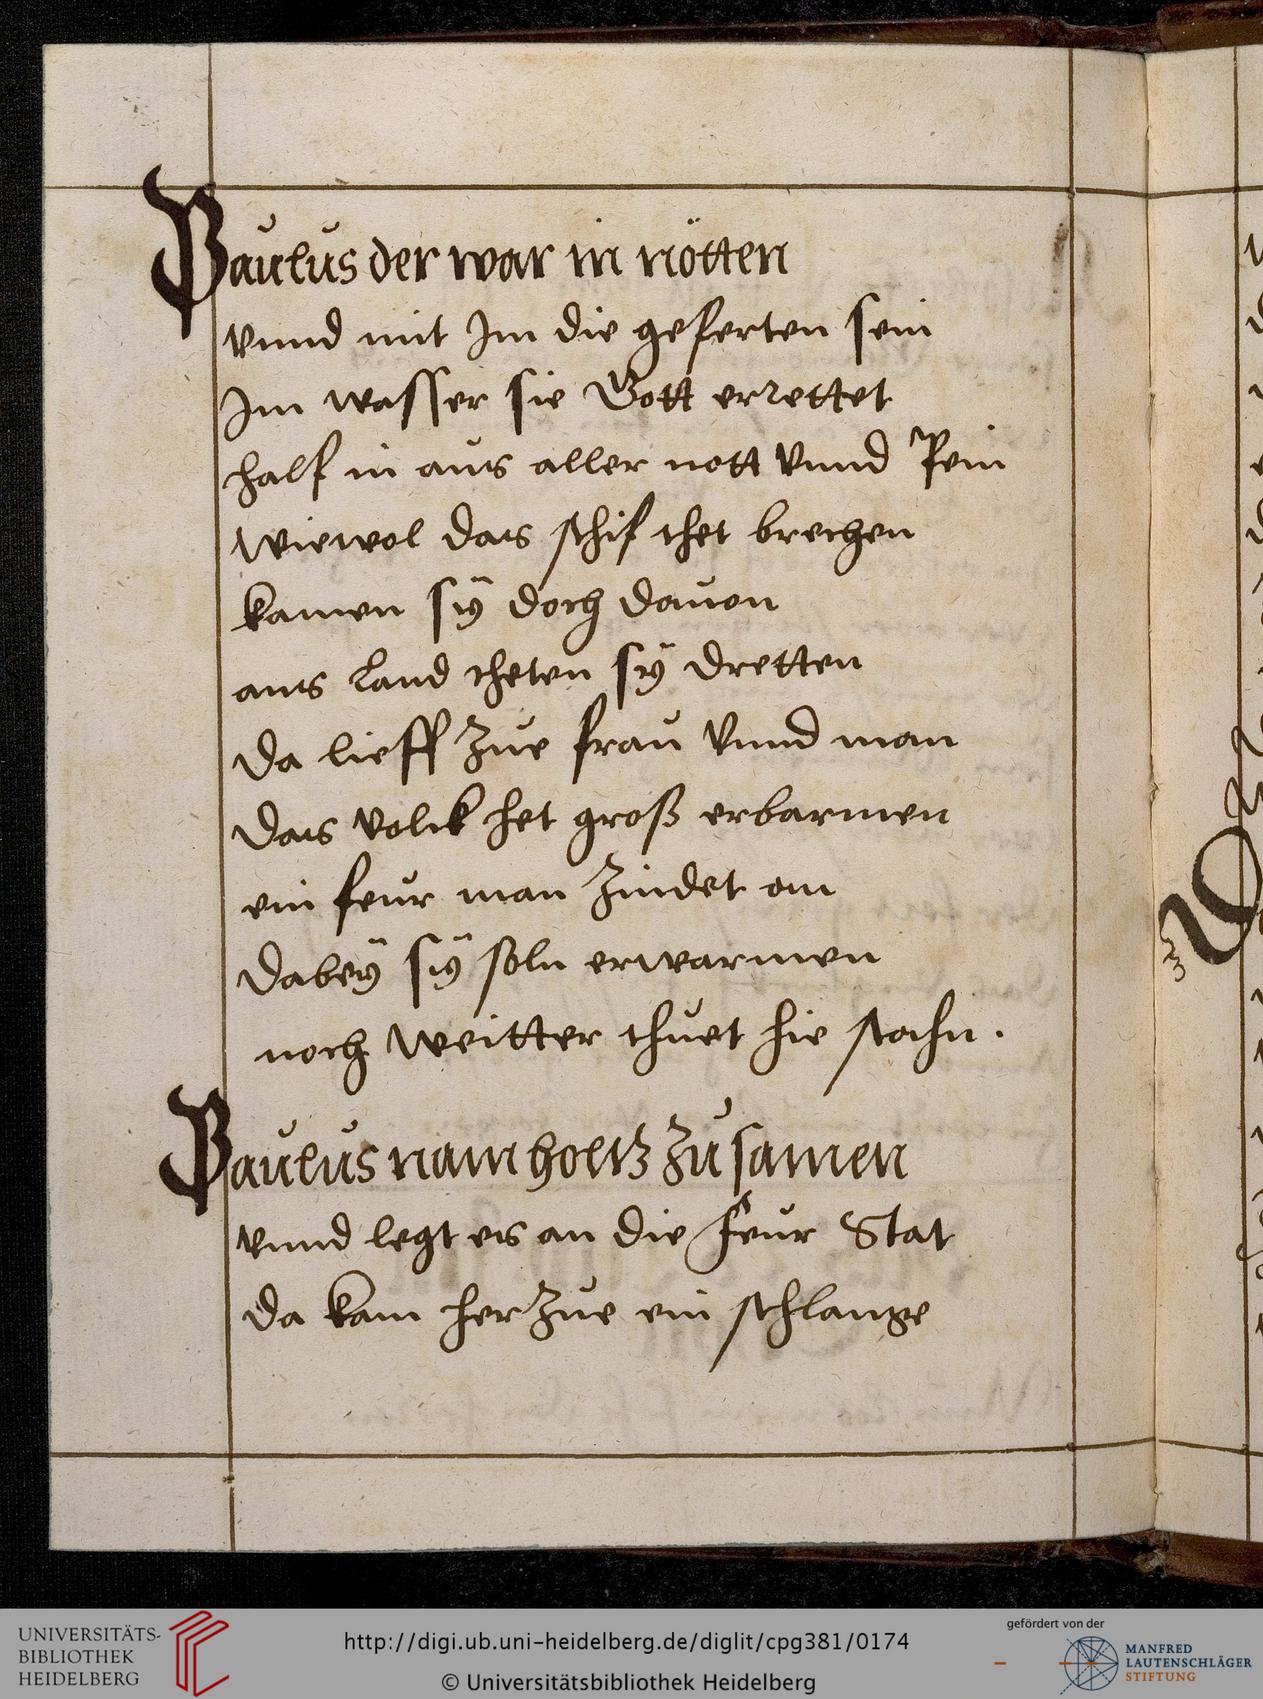 Paulus der war in nötten
vnnd mit Im die geferten sein
Im wasser sie Gott errettet
half in aus aller nott vnnd Pein
wiewol das schif thet brechen
kamen sÿ doch dauon
ans Land theten sÿ dretten
da lieff zue frau vnnd man
das volck het groß erbarmen
ein feur man zindet an
dabeÿ sÿ soln erwarmen
noch weitter thuet hie stahn.
Paulus nam holtz zusamen
vnnd legt es an die Feur Stat
da kam herzue ein schlange
UNIVERSITÄTS-
BIBLIOTHEK
HEIDELBERG
http://digi.ub.uni-heidelberg.de/diglit/cpg381/0174
© Universitätsbibliothek Heidelberg
gefördert von der
MANFRED
LAUTENSCHLÄGER
STIFTUNG